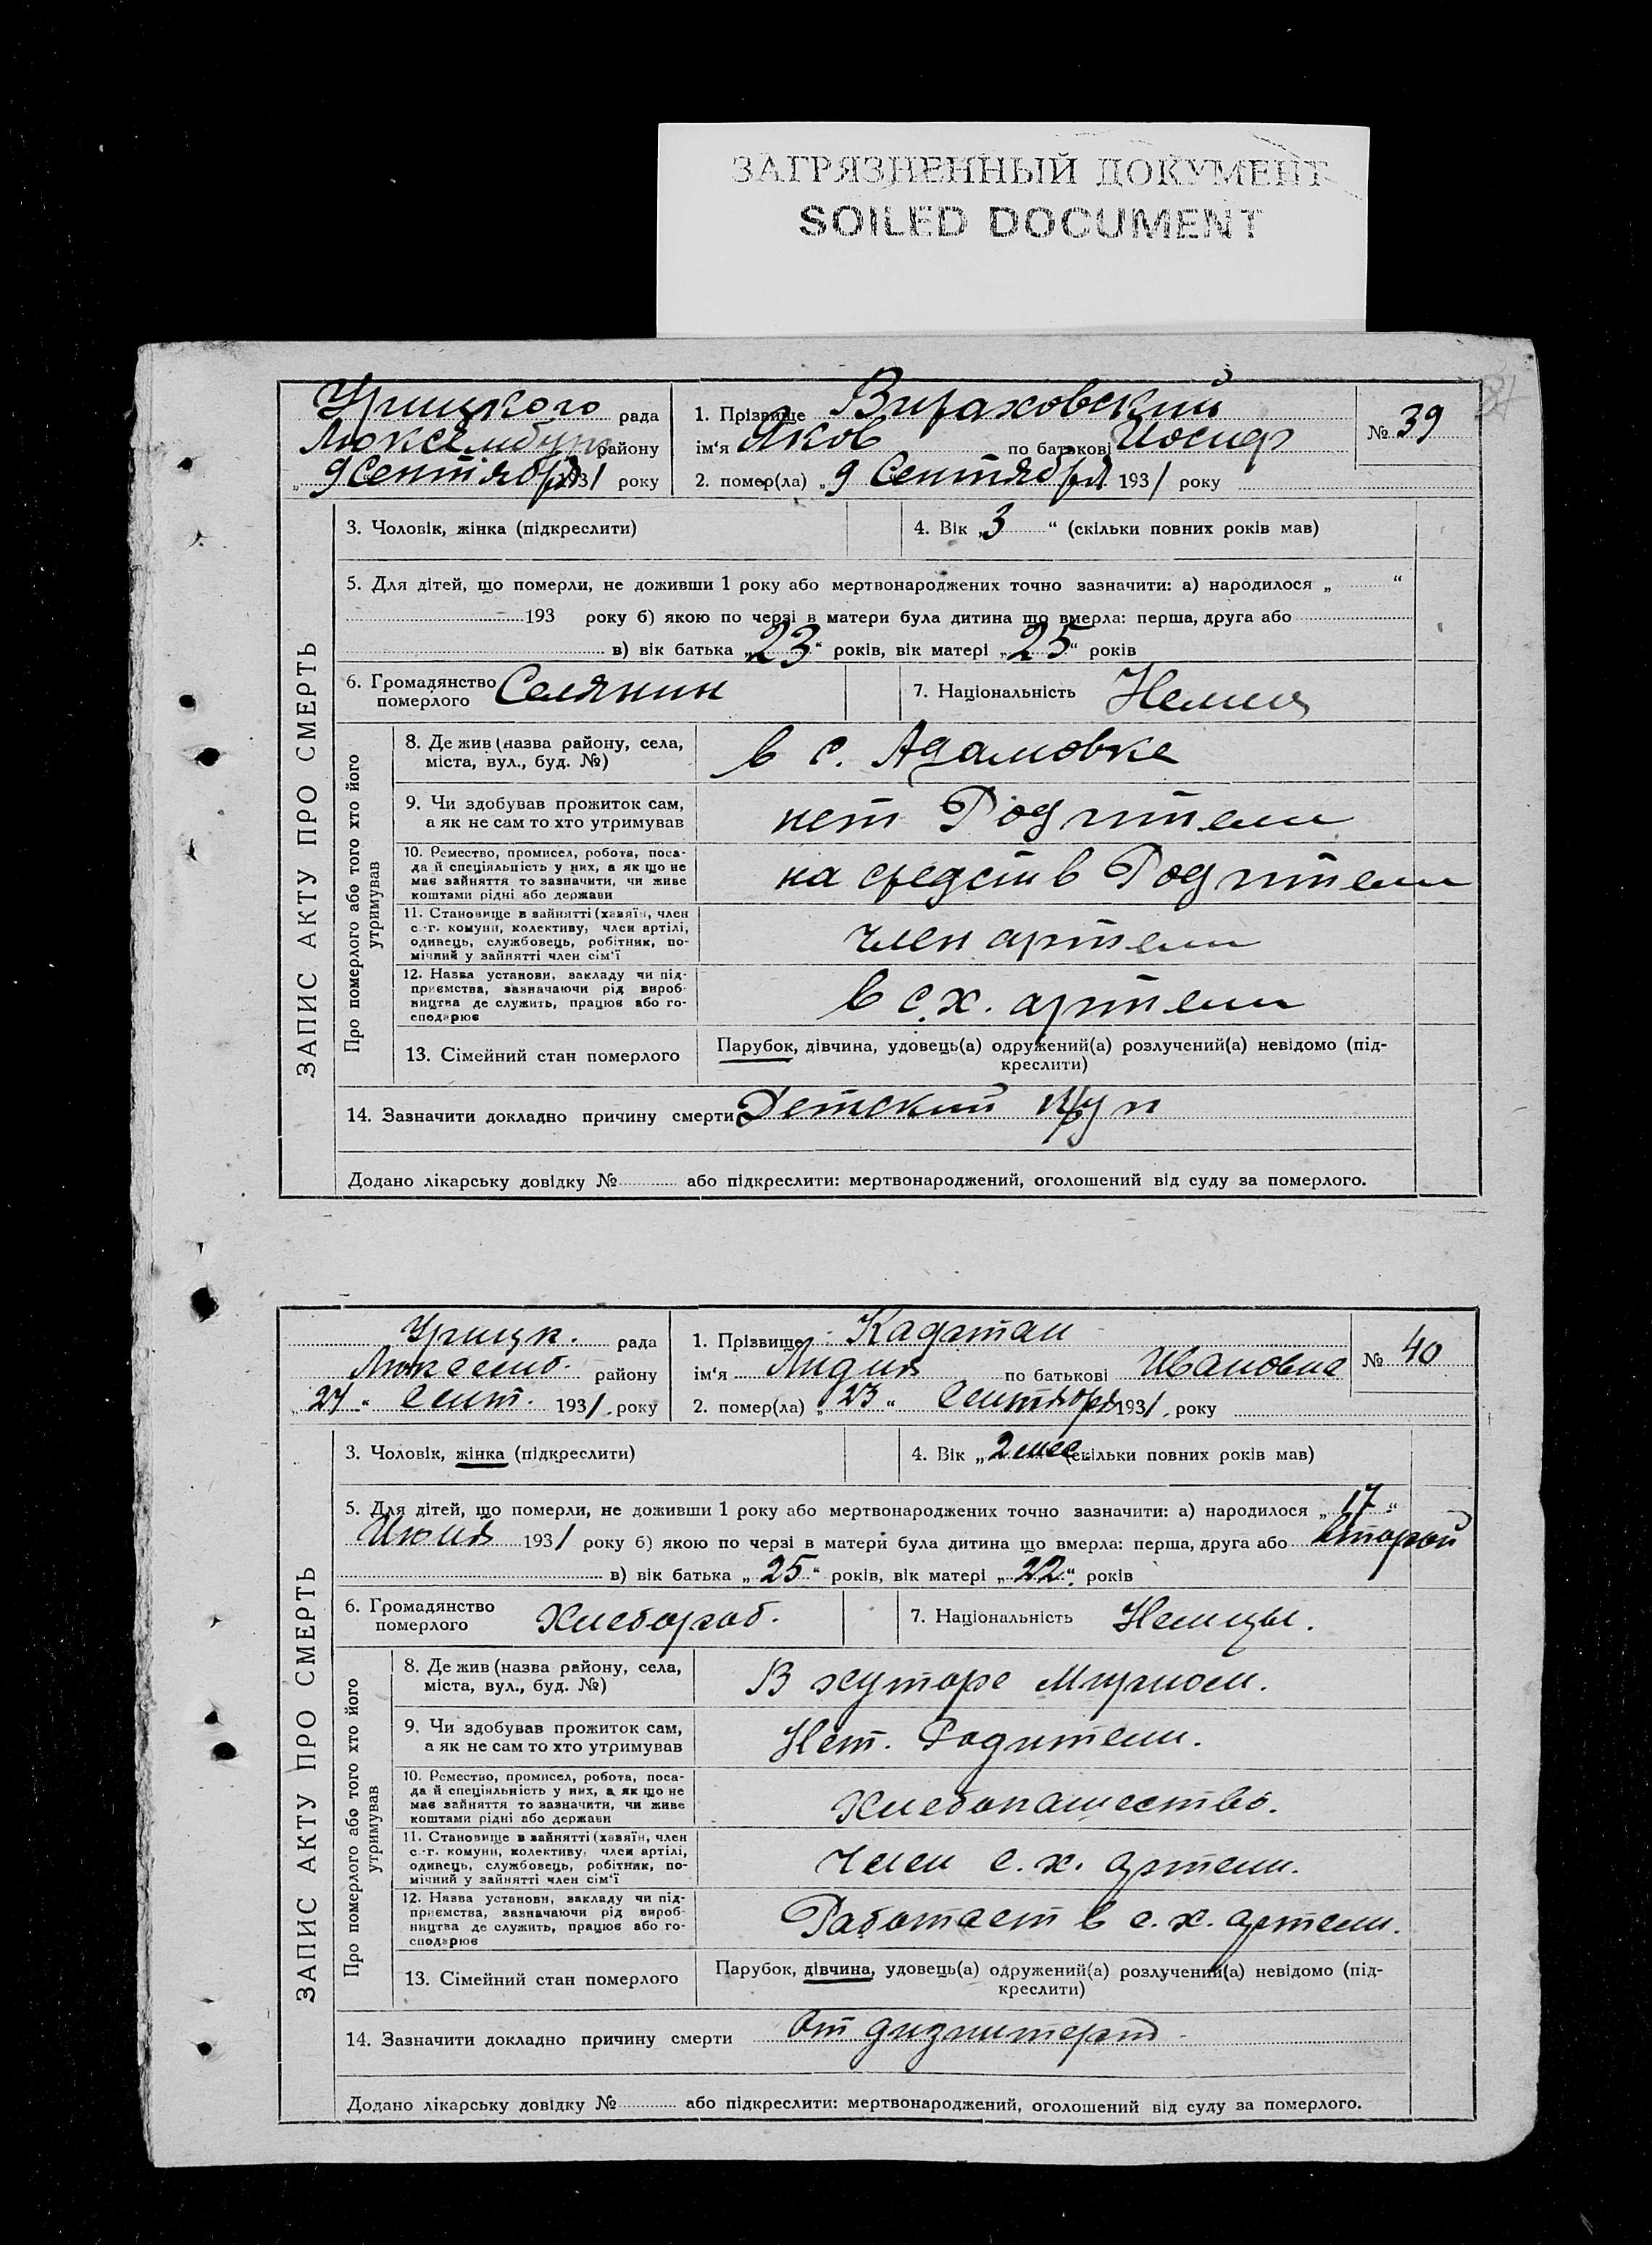 ЗАГРЯЗНЕННЫЙ ДОКУМЕНТ
SOILED DOCUMENT
ЗАПИС АКТУ ПРО СМЕРТЬ
Урицкого рада
Люксембург району
„9 Сентября 1931 року
1. Прізвище Вираховский
ім‘я Яков по батькові Иосиф
2. помер(ла) „9 Сентября 1931 року
№ 39
3. Чоловік, жінка (підкреслити)
4. Вік „3“ (скільки повних років мав)
5. Для дітей, що померли, не доживши 1 року або мертвонароджених точно зазначити: а) народилося „ “
193 року б) якою по черзі в матери була дитина що вмерла: перша, друга або
в) вік батька „23“ років, вік матері „25“ років
6. Громадянство померлого Селянин
7. Національність Немец
Про померлого або того хто його утримував
8. Де жив (назва району, села, міста, вул., буд. №) в с. Адамовке
9. Чи здобував прожиток сам, а як не сам то хто утримував нет Родители
10. Ремество, промисел, робота, поса-
да й спеціяльність у них, а як що не
має зайняття то зазначити, чи живе
коштами рідні або держави
на средств Родители
11. Становище в зайнятті (хазяїн, член
с.-г. комуни, колективу, член артілі,
одинець, службовець, робітник, по-
мічний у зайнятті член сім‘ї
член артели
12. Назва установи, закладу чи під-
приємства, зазначаючи рід вироб-
ництва де служить, працює або го-
сподарює
в с.х. артели
13. Сімейний стан померлого
Парубок, дівчина, удовець(а) одружений(а) розлучений(а) невідомо (під-
креслити)
14. Зазначити докладно причину смерти Детский
Додано лікарську довідку № або підкреслити: мертвонароджений, оголошений від суду за померлого.
ЗАПИС АКТУ ПРО СМЕРТЬ
Урицк. рада
Люксемб. району
„27“ Сент. 1931, року
1. Прізвище
ім‘я Лидия по батькові Ивановна
2. помер(ла) „23“ Сентября 1931, року
№ 40
3. Чоловік, жінка (підкреслити)
4. Вік „2 мес. (скільки повних років мав)
5. Для дітей, що померли, не доживши 1 року або мертвонароджених точно зазначити: а) народилося „17“
Июля 1931 року б) якою по черзі в матери була дитина що вмерла: перша, друга або второй
в) вік батька „25“ років, вік матері „22“ років
6. Громадянство померлого Хлебороб.
7. Національність Немцы.
Про померлого або того хто його утримував
8. Де жив (назва району, села, міста, вул., буд. №) В хуторе Мирном.
9. Чи здобував прожиток сам, а як не сам то хто утримував Нет. Родители.
10. Ремество, промисел, робота, поса-
да й спеціяльність у них, а як що не
має зайняття то зазначити, чи живе
коштами рідні або держави
Хлебопашество.
11. Становище в зайнятті (хазяїн, член
с.-г. комуни, колективу, член артілі,
одинець, службовець, робітник, по-
мічний у зайнятті член сім‘ї
Член с.х. артели.
12. Назва установи, закладу чи під-
приємства, зазначаючи рід вироб-
ництва де служить, працює або го-
сподарює
Работает в с.х. артели.
13. Сімейний стан померлого
Парубок, дівчина, удовець(а) одружений(а) розлучений(а) невідомо (під-
креслити)
14. Зазначити докладно причину смерти От дизинтерии
Додано лікарську довідку № або підкреслити: мертвонароджений, оголошений від суду за померлого.